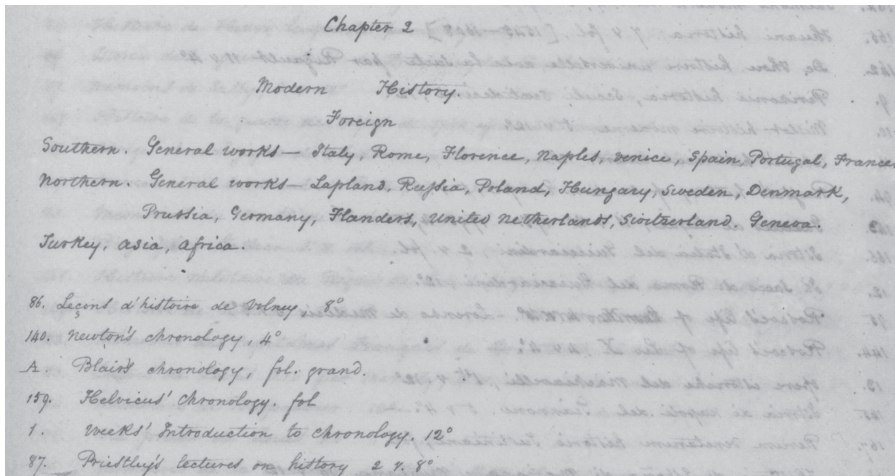 Chapter 2
Modern History.
Foreign
Southern. General works — Italy, Rome, Florence, Naples, Venice, Spain, Portugal, France,
Northern. General works — Lapland, Russia, Poland, Hungary, Sweden, Denmark,
Prussia, Germany, Flanders, United Netherlands, Switzerland. Geneva.
Turkey. Asia, Africa.
86. Leçons d'histoire de Volney, 8°
140. Newton's chronology, 4°
A. Blair's chronology, fol. grand.
159. Helvicus' chronology. fol
1. Weeks' Introduction to chronology. 12°
87. Priestley's lectures on history 2 v. 8°